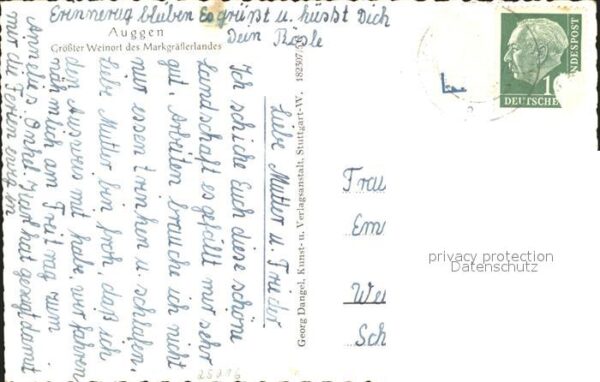 Liebe Mutter u. Frieder
Ich schicke Euch diese schöne
Landschaft es gefällt mir sehr
gut. Arbeiten brauche ich nicht
nur essen trinken u. schlafen.
Liebe Mutter bin froh, daß ich
den Ausweis mit habe, wir fahren
nähmlich am Freitag zum
Annelies Onkel, Karl hat gesagt damit
mir die Ferien ewig in
Erinnerung bleiben Es grüßt u. küsst Dich
Dein
Auggen
Größter Weinort des Markgräflerlandes
Georg Dangel, Kunst- u. Verlagsanstalt, Stuttgart-W.
Frau
Em
We
Sch
1
DEUTSCHE
NDESPOST
privacy protection
Datenschutz